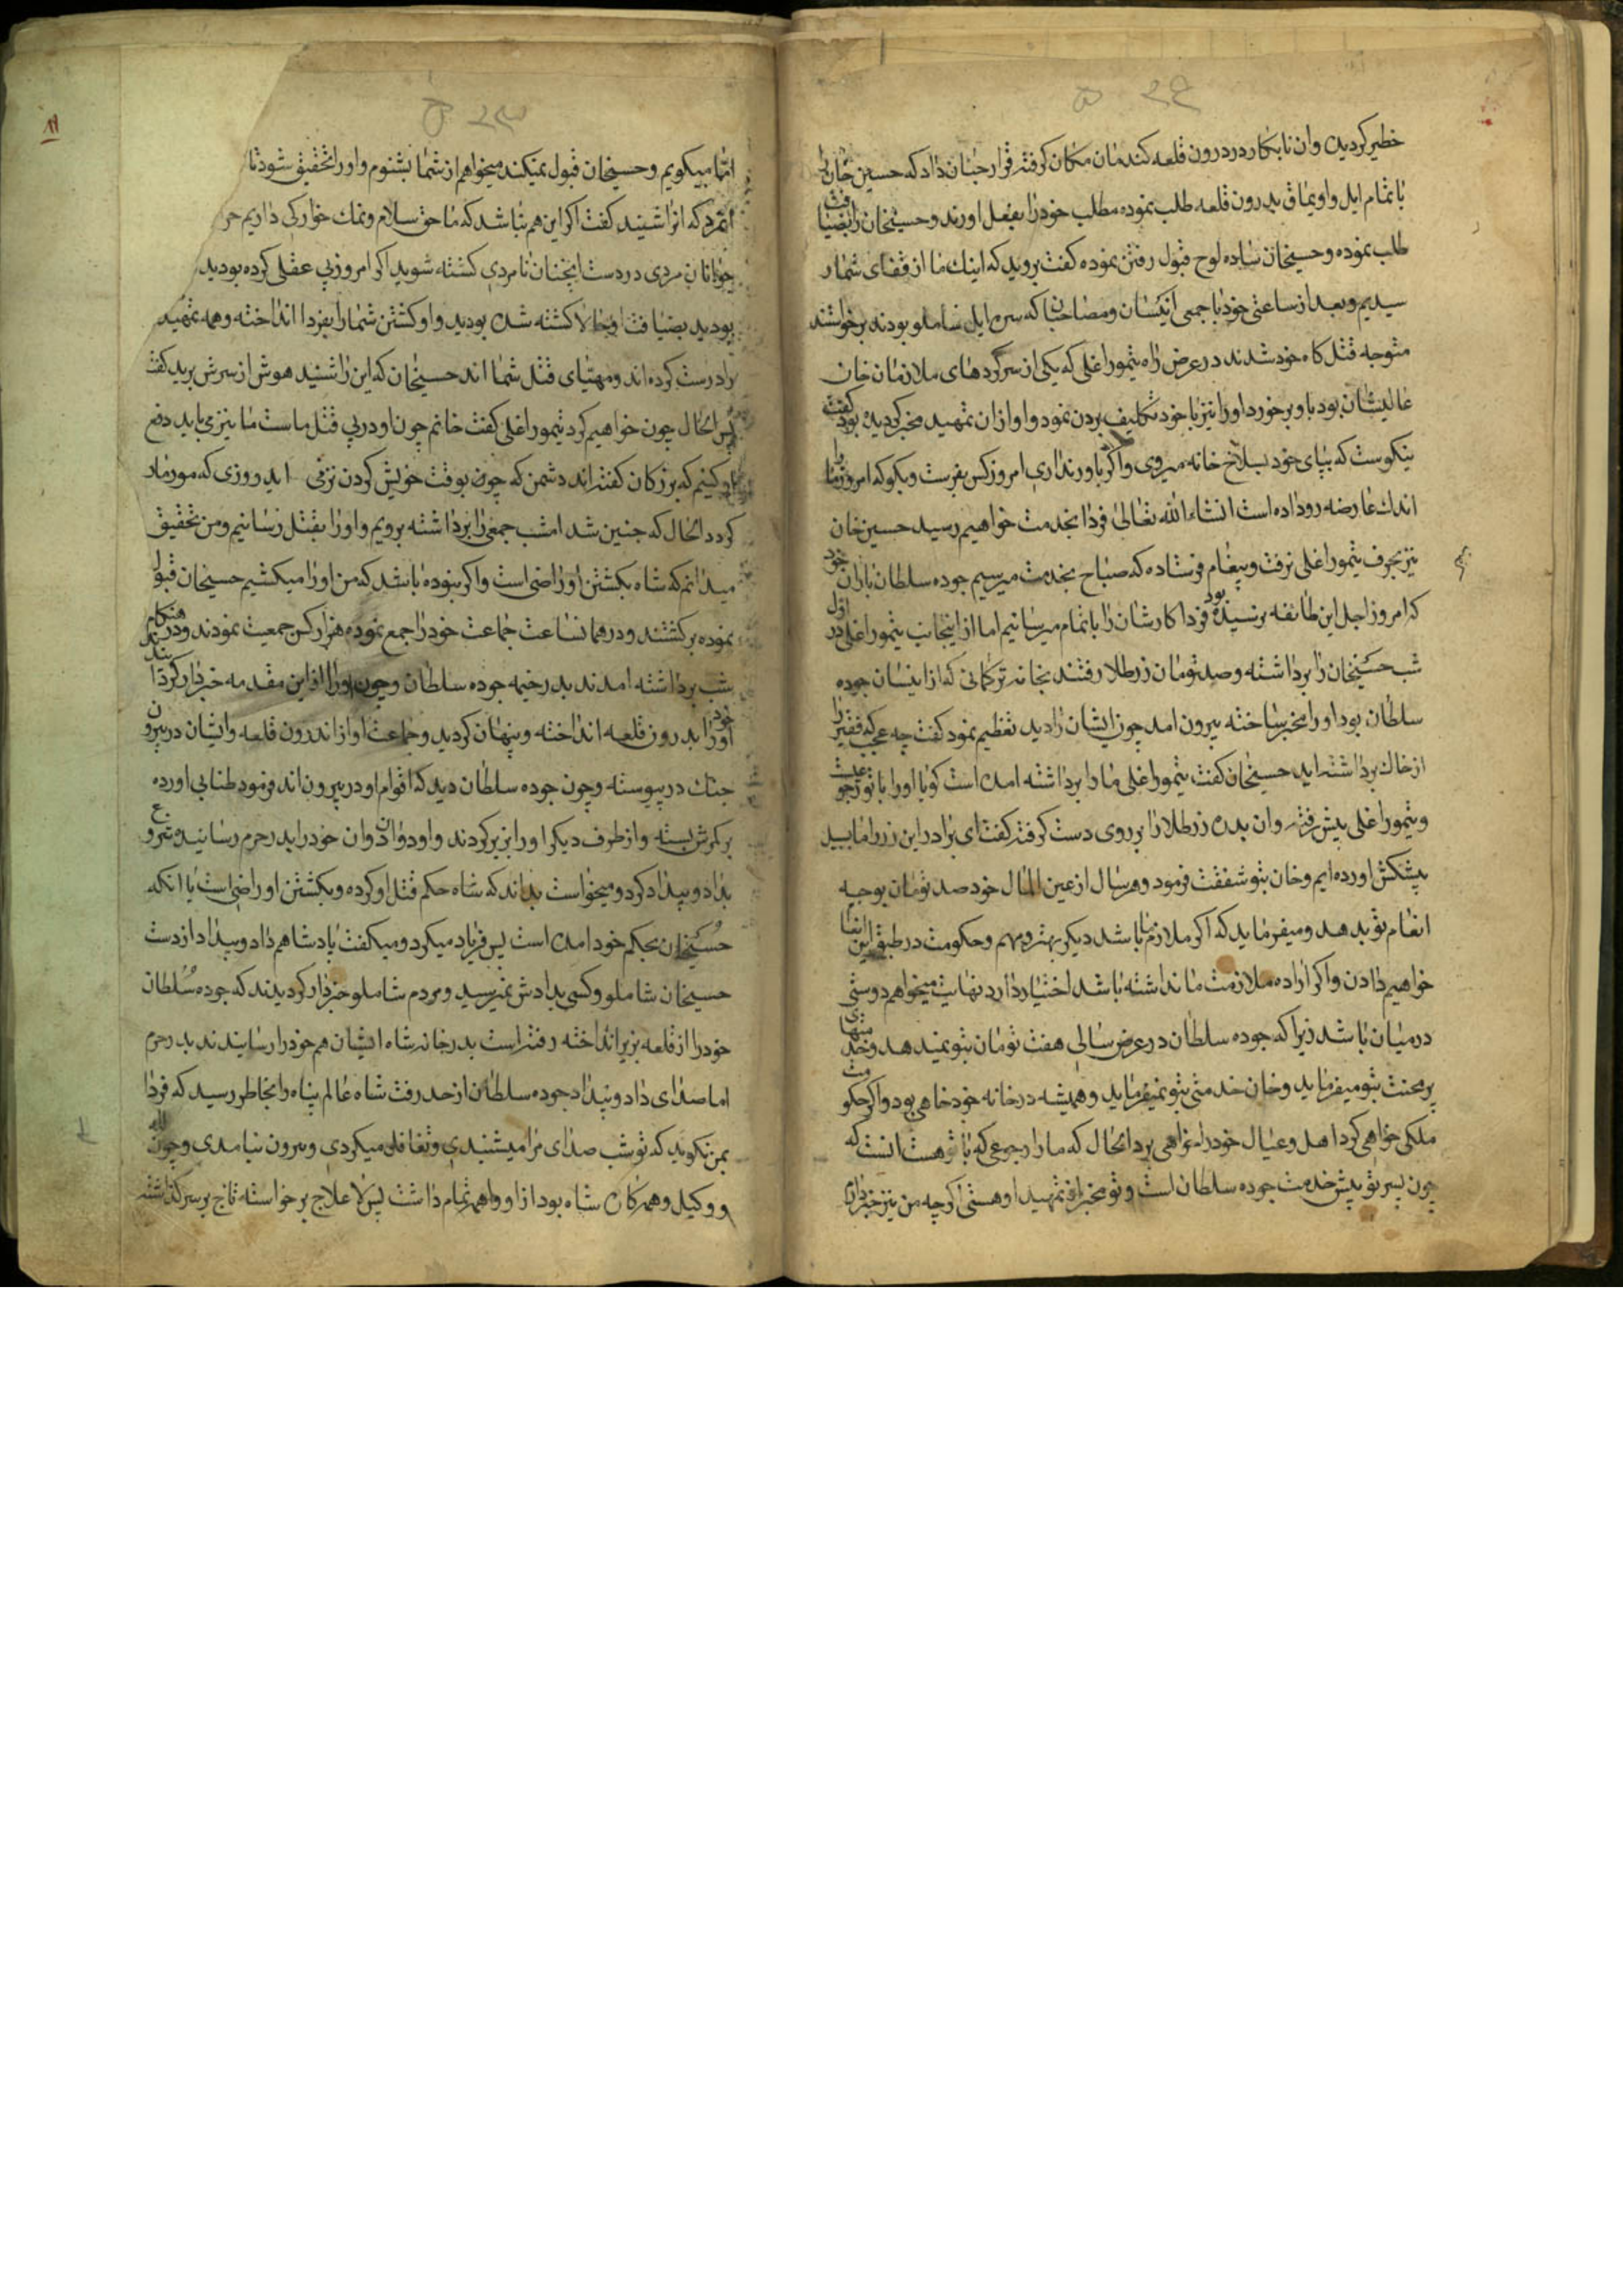 خطیر کردیده وان نابکار در درون قلعه کندمان مکان کرفته قرار چنان داد که حسین خان را
با تمام ایل واویماق بدرون قلعه طلب نموده مطلب خود را بفعل اورند وحسینخان را بضیافت
طلب نموده وحسینخان ساده لوح قبول رفتن نموده کفت بروید که اینک ما از قفای شما ر
سیدیم وبعد از ساعتی خود با جمعی انیسان ومصاحبان که سر ایل شاملو بودند برخواستند
متوجه قتلکاه خود شدند در عرض راه تیمور اغلی که یکی از سرکردهای ملازمان خان
عالیشان بود باو برخورد او را نیز با خود تکلیف بردن نمود واو از ان تمهید مخبر کردیده بود کفت
نیکوست که بپای خود بسلاخ خانه میروی واکر باور نداری امروز کس بفرست وبکو که امروز ما را
اندک عارضه رو داده است انشاء الله تعالی فردا بخدمت خواهیم رسید حسین خان
نیز بحرف تیمور اغلی نرفت وپیغام فرستاده که صباح بخدمت میرسیم جوده سلطان بیاران خود
که امروز اجل این طائفه نرسیده بود فردا کارشان را باتمام میرسانیم اما از اینجانب تیمور اغلی در اول
شب حسینخان را برداشته وصد تومان زر طلا رفتند بخانه ترکمانی که از انیسان جوده
سلطان بود او را مخبر ساخته بیرون امد چون ایشان را دید تعظیم نمود کفت چه عجب که فقیر را
از خاک برداشته اید حسینخان کفت تیمور اغلی ما را برداشته امده است کویا او را با تو رجوعیست
وتیمور اغلی پیش رفته وان بدره زر طلا را بر روی دست کرفته کفت ای برادر این زر را ما بید
پیشکش اورده ایم وخان بتو شفقت فرمود وهر سال از عین المال خود صد تومان بوجه
انعام تو بدهد ومیفرماید که اکر ملازم ما باشد دیکر بهتر ومهم وحکومت در طبق این انها
خواهیم دادن واکر اراده ملازمت ما نداشته باشد اختیار دارد نهایت میخواهم دوستی
در میان باشد زیرا که جوده سلطان در عرض سالی هفت تومان بتو نمیدهد وخدمتهای
پر محنت بتو میفرماید وخان خدمتی بتو نمیفرماید وهمیشه در خانه خود خاهی بود واکر حکومت
ملکی خواهی کرد اهل وعیال خود را خواهی برد الحال که ما را رجوعی که با تو هست انست که
چون پسر تو پیش خدمت جوده سلطان است وتو مخبر از تمهید او هستی اکرچه من نیز خبر دارم
اما میکویم وحسینخان قبول نمیکند میخواهم از شما بشنوم واو را تحقیق شود تا
انمرد که انرا شنید کفت اکر این هم نباشد که ما حق سلام ونمک خوارکی داریم
جوانان مردی در دست اینچنان نامردی کشته شوید اکر امروز بی عقلی کرده بودید
بودید بضیافت او حالا کشته شده بودید واو کشتن شما را بفردا انداخته وهمه تمهید
را درست کرده اند ومهیای قتل شما اند حسینخان که این را شنید هوش از سرش پرید کفت
پس الحال چون خواهیم کرد تیمور اغلی کفت خانم چون او در پی قتل ماست ما نیز می باید دفع
او کنیم که بزرکان کفته اند دشمن که چون بوقت خویش کردن نزنی اید روزی که مور مار
کردد الحال که چنین شد امشب جمعی را برداشته برویم واو را بقتل رسانیم ومن تحقیق
میدانم که شاه بکشتن او راضی است واکر نبوده باشد که من او را میکشیم حسینخان قبول
نموده برکشتند ودر همانساعت جماعت خود را جمع نموده هزار کس جمعیت نمودند ودر هنکام نیم
شب برداشته امدند بدر خیمه جوده سلطان وچون او را از این مقدمه خبردار کردند
او خود را بدرون قلعه انداخته وپنهان کردید وجماعت او از اندرون قلعه وایشان در بیرون
جنک در پیوسته وچون جوده سلطان دید که اقوام او در بیرون اند فرمود طنابی اورده
بر کمرش بسته واز طرف دیکر او را بزیر کردند واو دوان دوان خود را بدر حرم رسانید وشروع
بداد وبیداد کرد ومیخواست بداند که شاه حکم قتل او کرده وبکشتن او راضی است یا انکه
حسینخان بحکم خود امده است پس فریاد میکرد ومیکفت پادشاهم داد وبیداد از دست
حسینخان شاملو وکسی بدادش نمیرسید ومردم شاملو خبردار کردیدند که جوده سلطان
خود را از قلعه بزیر انداخته رفته است بدر خانه شاه ایشان هم خود را رسانیدند بدر حرم
اما صدای داد وبیداد جوده سلطان از حد رفت شاه عالم پناه را بخاطر رسید که فردا
بمن نکوید که تو شب صدای مرا میشنیدی وتغافل میکردی وبیرون نیامدی وچون لله
ووکیل وهمه کاره شاه بود از او واهمه تمام داشت پس لا علاج برخواسته تاج بر سر کذاشته